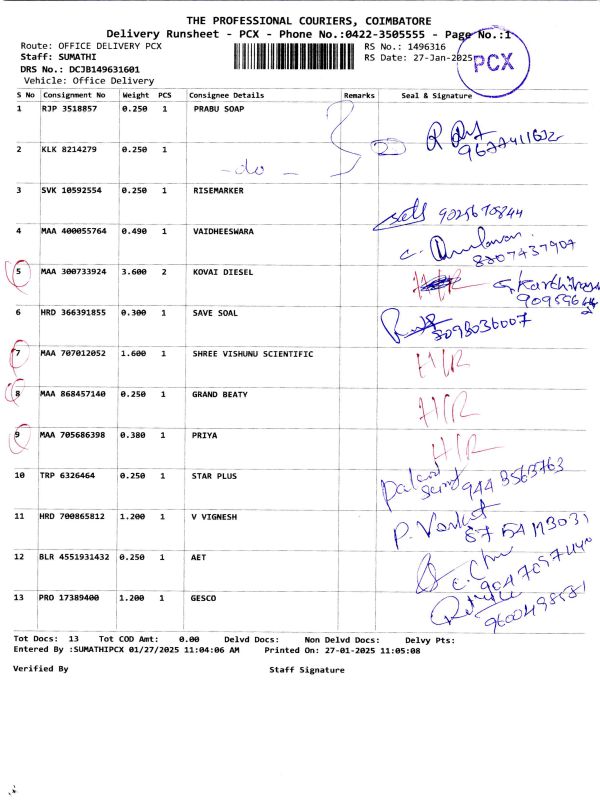 THE PROFESSIONAL COURIERS, COIMBATORE
Delivery Runsheet - PCX - Phone No.:0422-3505555 - Page No.:1
Route: OFFICE DELIVERY PCX
RS No.: 1496316
Staff: SUMATHI
RS Date: 27-Jan-2025
PCX
DRS No.: DCJB149631601
Vehicle: Office Delivery
S No Consignment No Weight PCS Consignee Details Remarks Seal & Signature
1 RJP 3518857 0.250 1 PRABU SOAP
2 KLK 8214279 0.250 1 -do-
3 SVK 10592554 0.250 1 RISEMARKER 9025670844
4 MAA 400055764 0.490 1 VAIDHEESWARA 8807437907
5 MAA 300733924 3.600 2 KOVAI DIESEL
6 HRD 366391855 0.300 1 SAVE SOAL
7 MAA 707012052 1.600 1 SHREE VISHUNU SCIENTIFIC H/R
8 MAA 868457140 0.250 1 GRAND BEATY H/R
9 MAA 705686398 0.380 1 PRIYA H/R
10 TRP 6326464 0.250 1 STAR PLUS
11 HRD 700865812 1.200 1 V VIGNESH P. Venkat
12 BLR 4551931432 0.250 1 AET
13 PRO 17389400 1.200 1 GESCO
Tot Docs: 13 Tot COD Amt: 0.00 Delvd Docs: Non Delvd Docs: Delvy Pts:
Entered By :SUMATHIPCX 01/27/2025 11:04:06 AM Printed On: 27-01-2025 11:05:08
Verified By Staff Signature